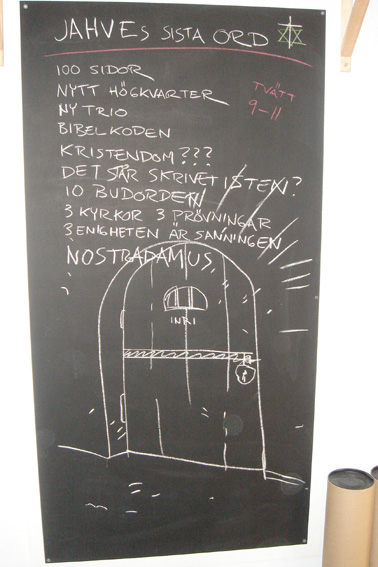 JAHVES SISTA ORD
100 SIDOR
NYTT HÖGKVARTER
TVÄTT
9-11
NY TRIO
BIBELKODEN
KRISTENDOM???
DET STÅR SKRIVET I STEN?
10 BUDORDEN
3 KYRKOR 3 PRÖVNINGAR
3ENIGHETEN ÄR SANNINGEN
NOSTRADAMUS
INRI